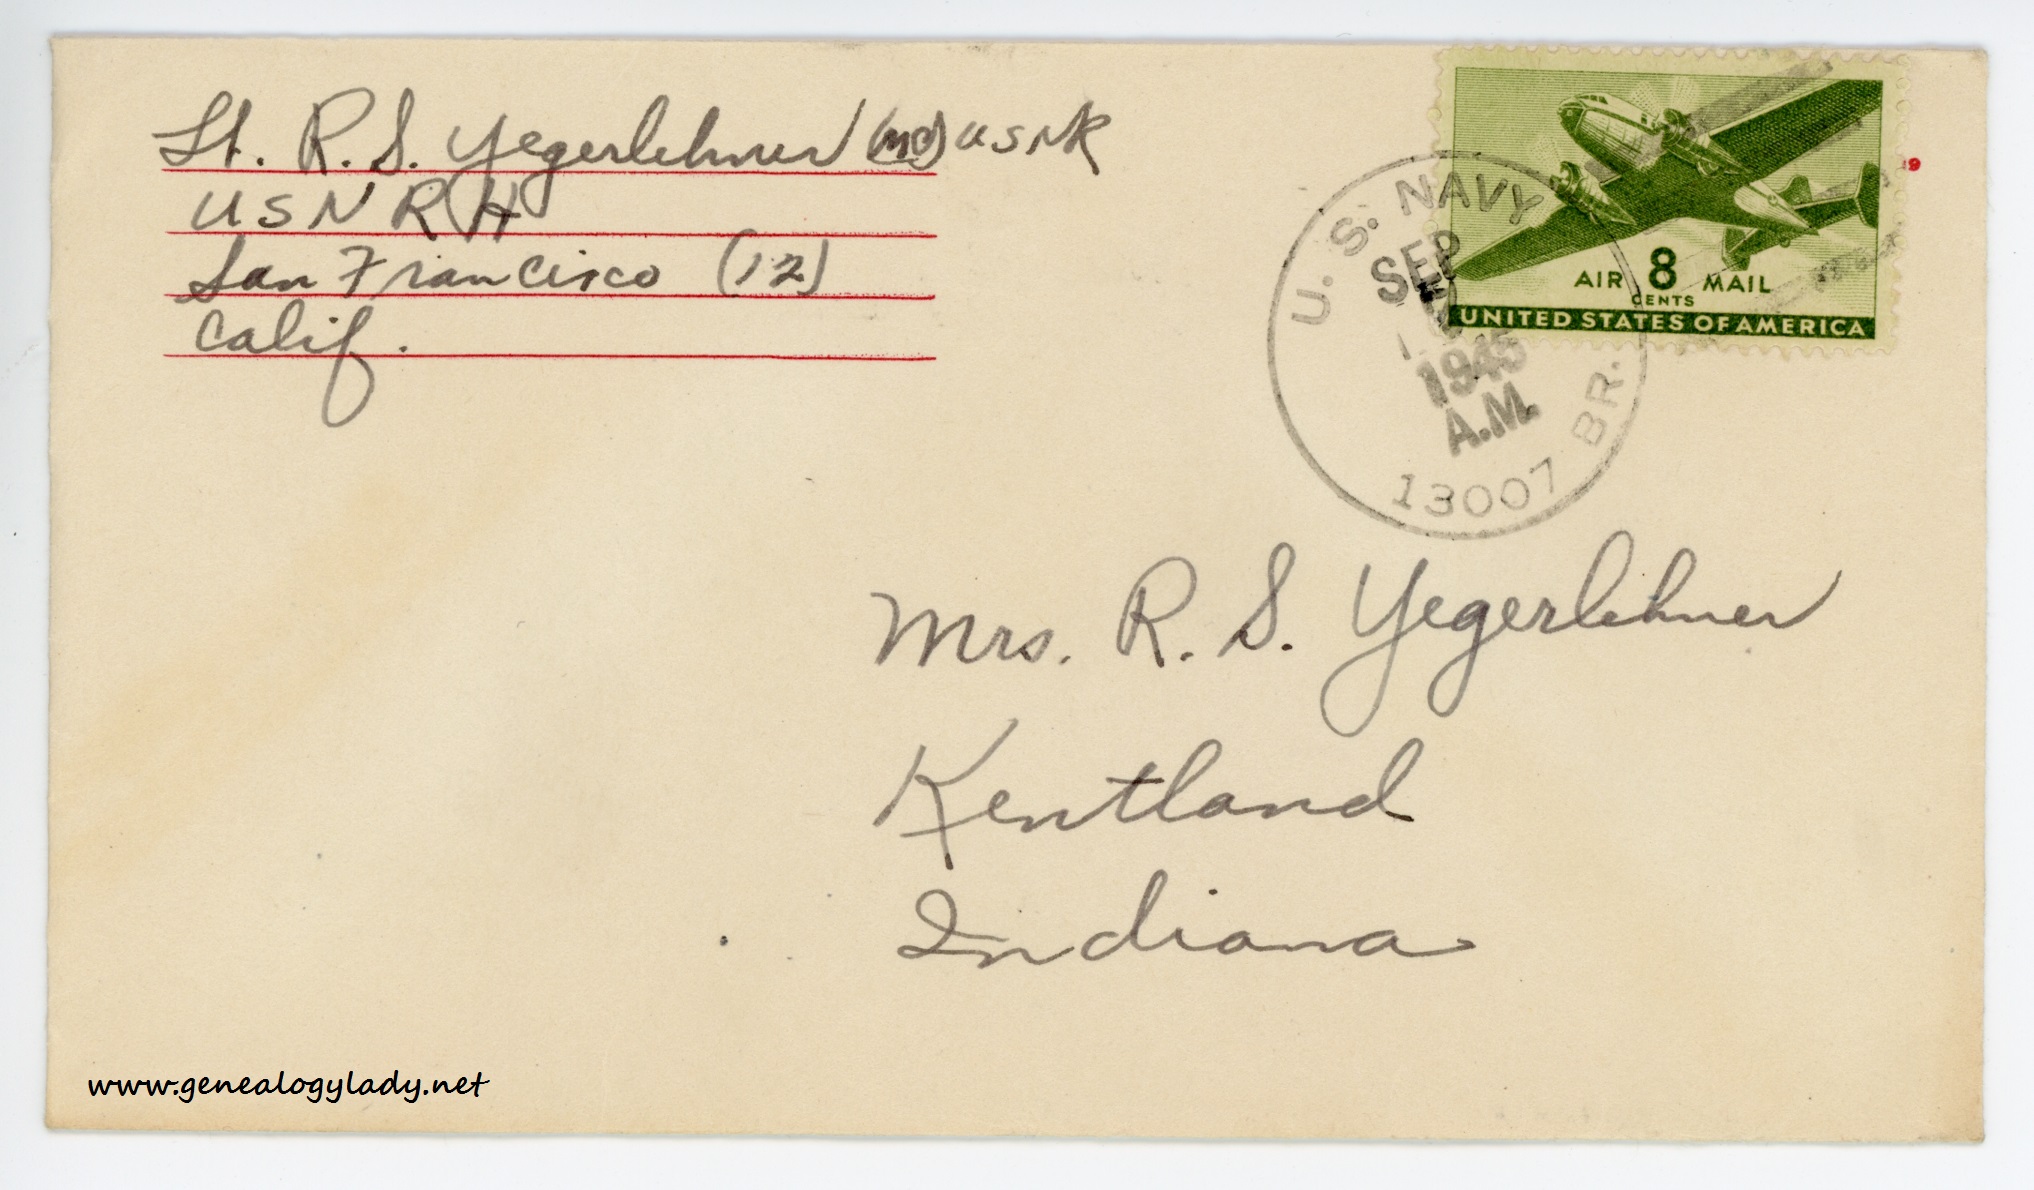 Lt. R. S. Yegerlehner (MC) USNR
USNRH
San Francisco (12)
Calif.
U. S. NAVY
SEP
1945
A.M.
13007 BR.
AIR 8 MAIL
CENTS
UNITED STATES OF AMERICA
Mrs. R. S. Yegerlehner
Kentland
Indiana
www.genealogylady.net